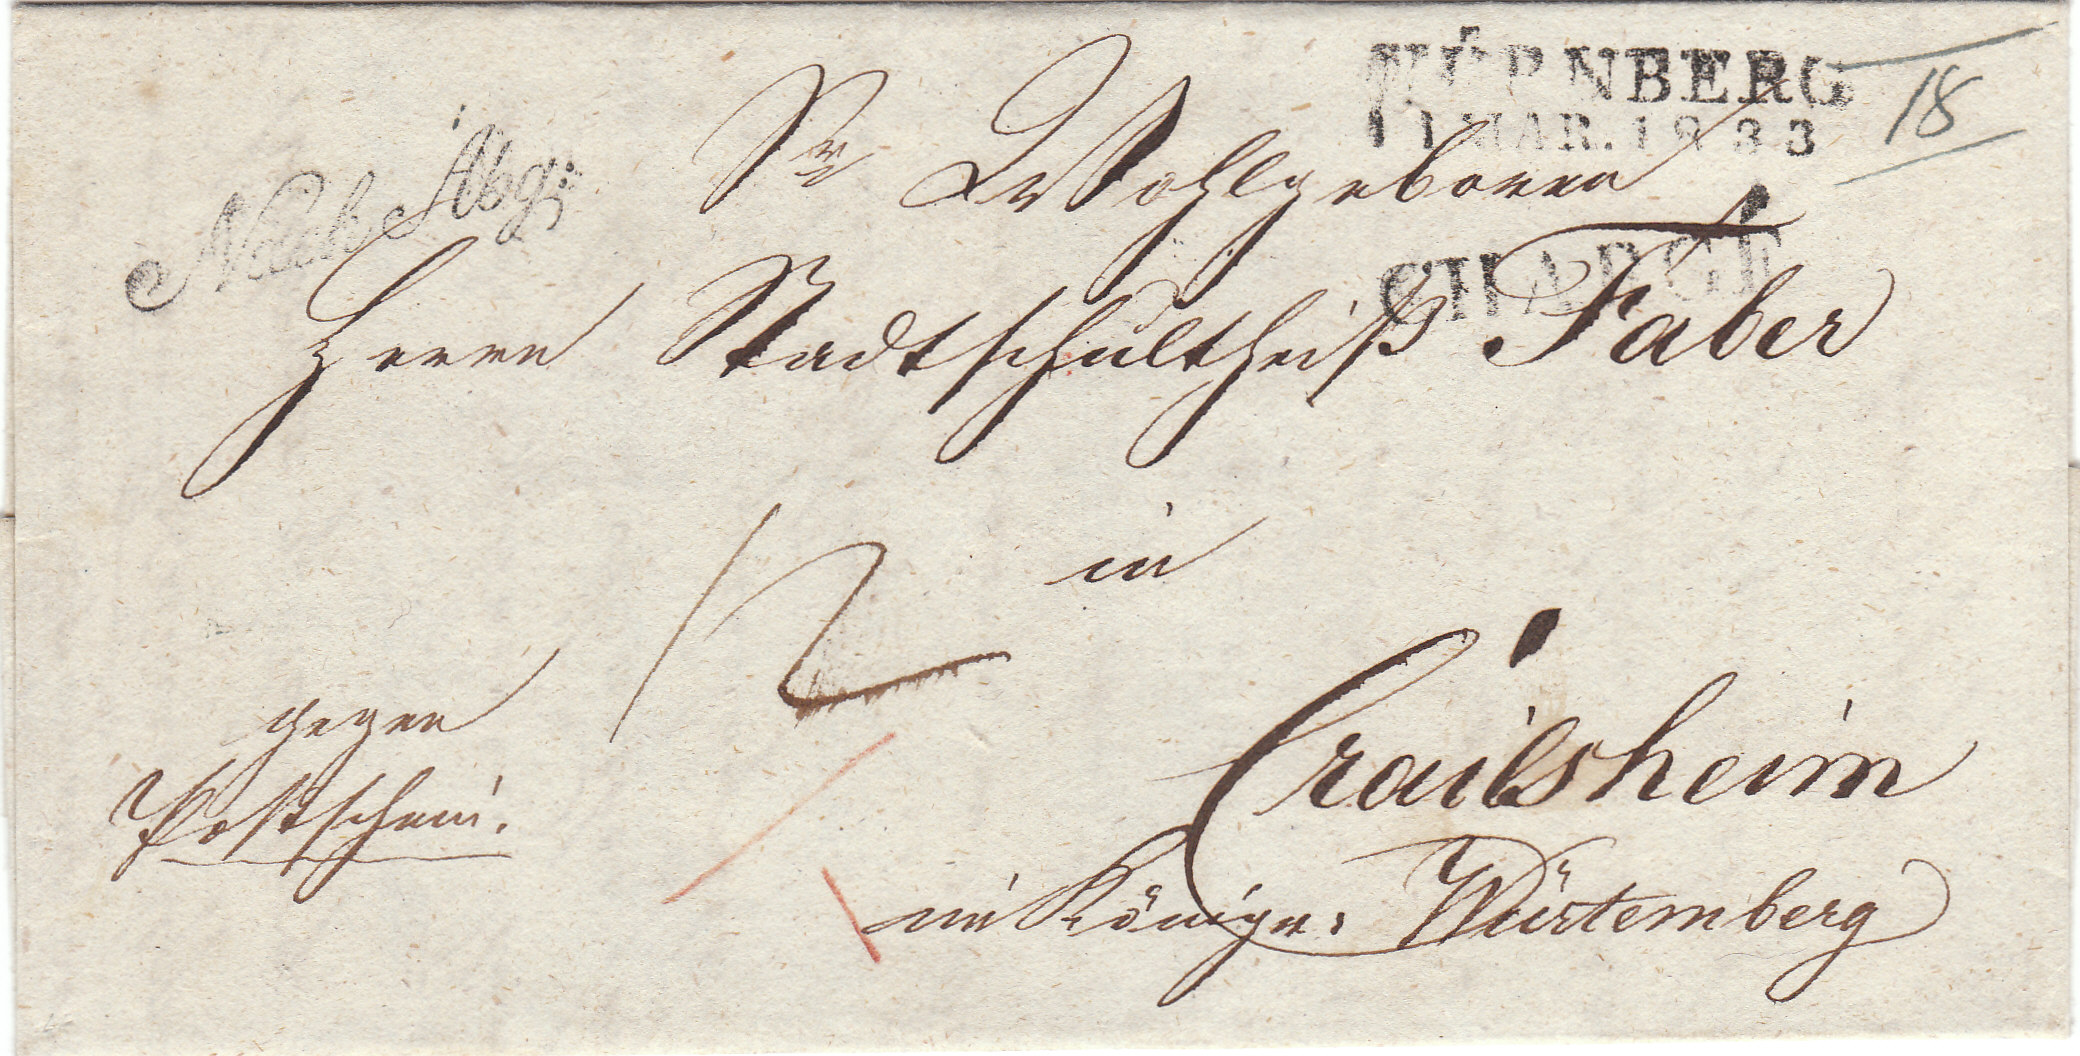 NÜRNBERG
11 MAR. 1833
18
Nach Abg:
Sr Wohlgeboren
CHARGÉ
Herrn Stadtschultheiß Faber
12
in
gegen
Postschein.
Crailsheim
im Königr: Würtemberg